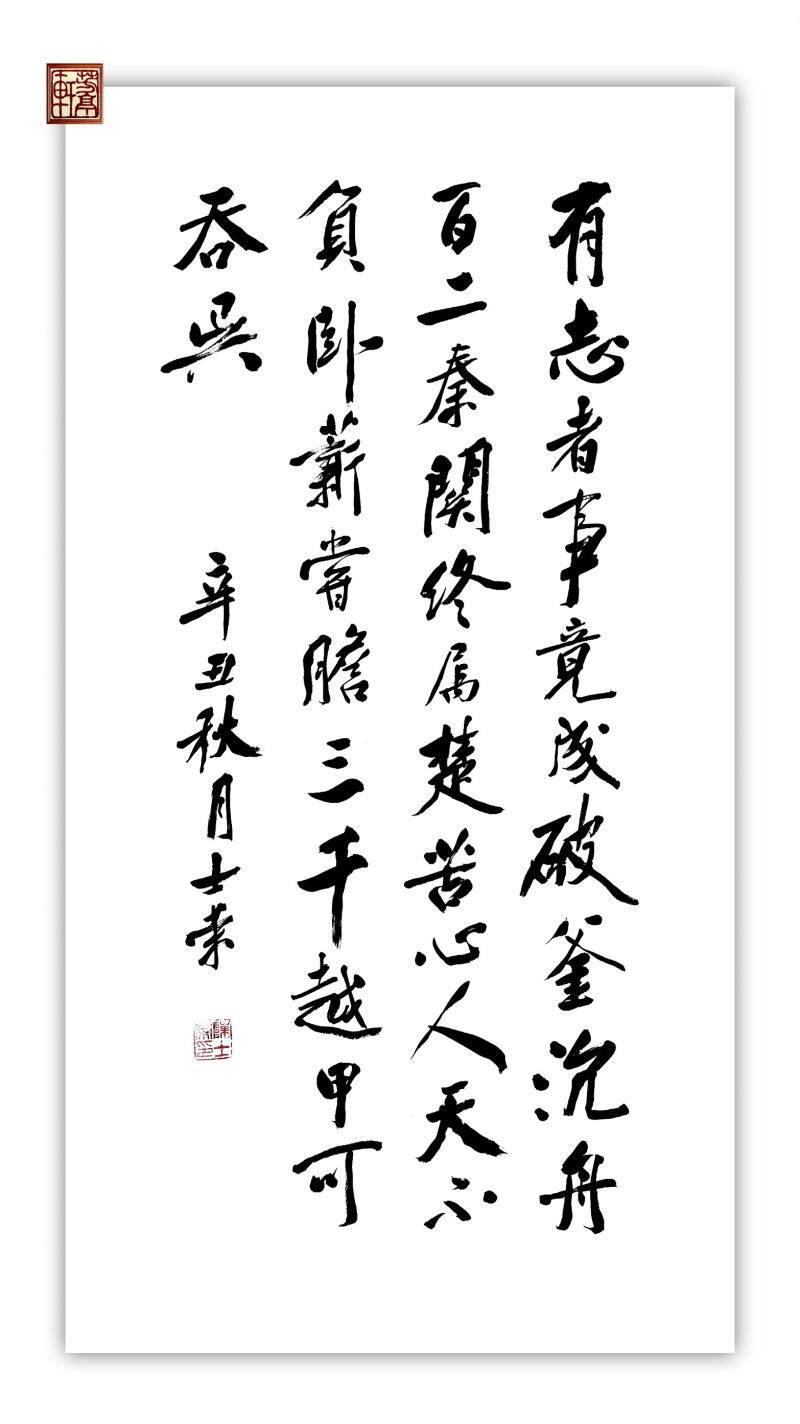 有志者事竟成破釜沉舟
百二秦関终属楚苦心人天不
負卧薪嘗膽三千越甲可
吞吳
辛丑秋月士荣